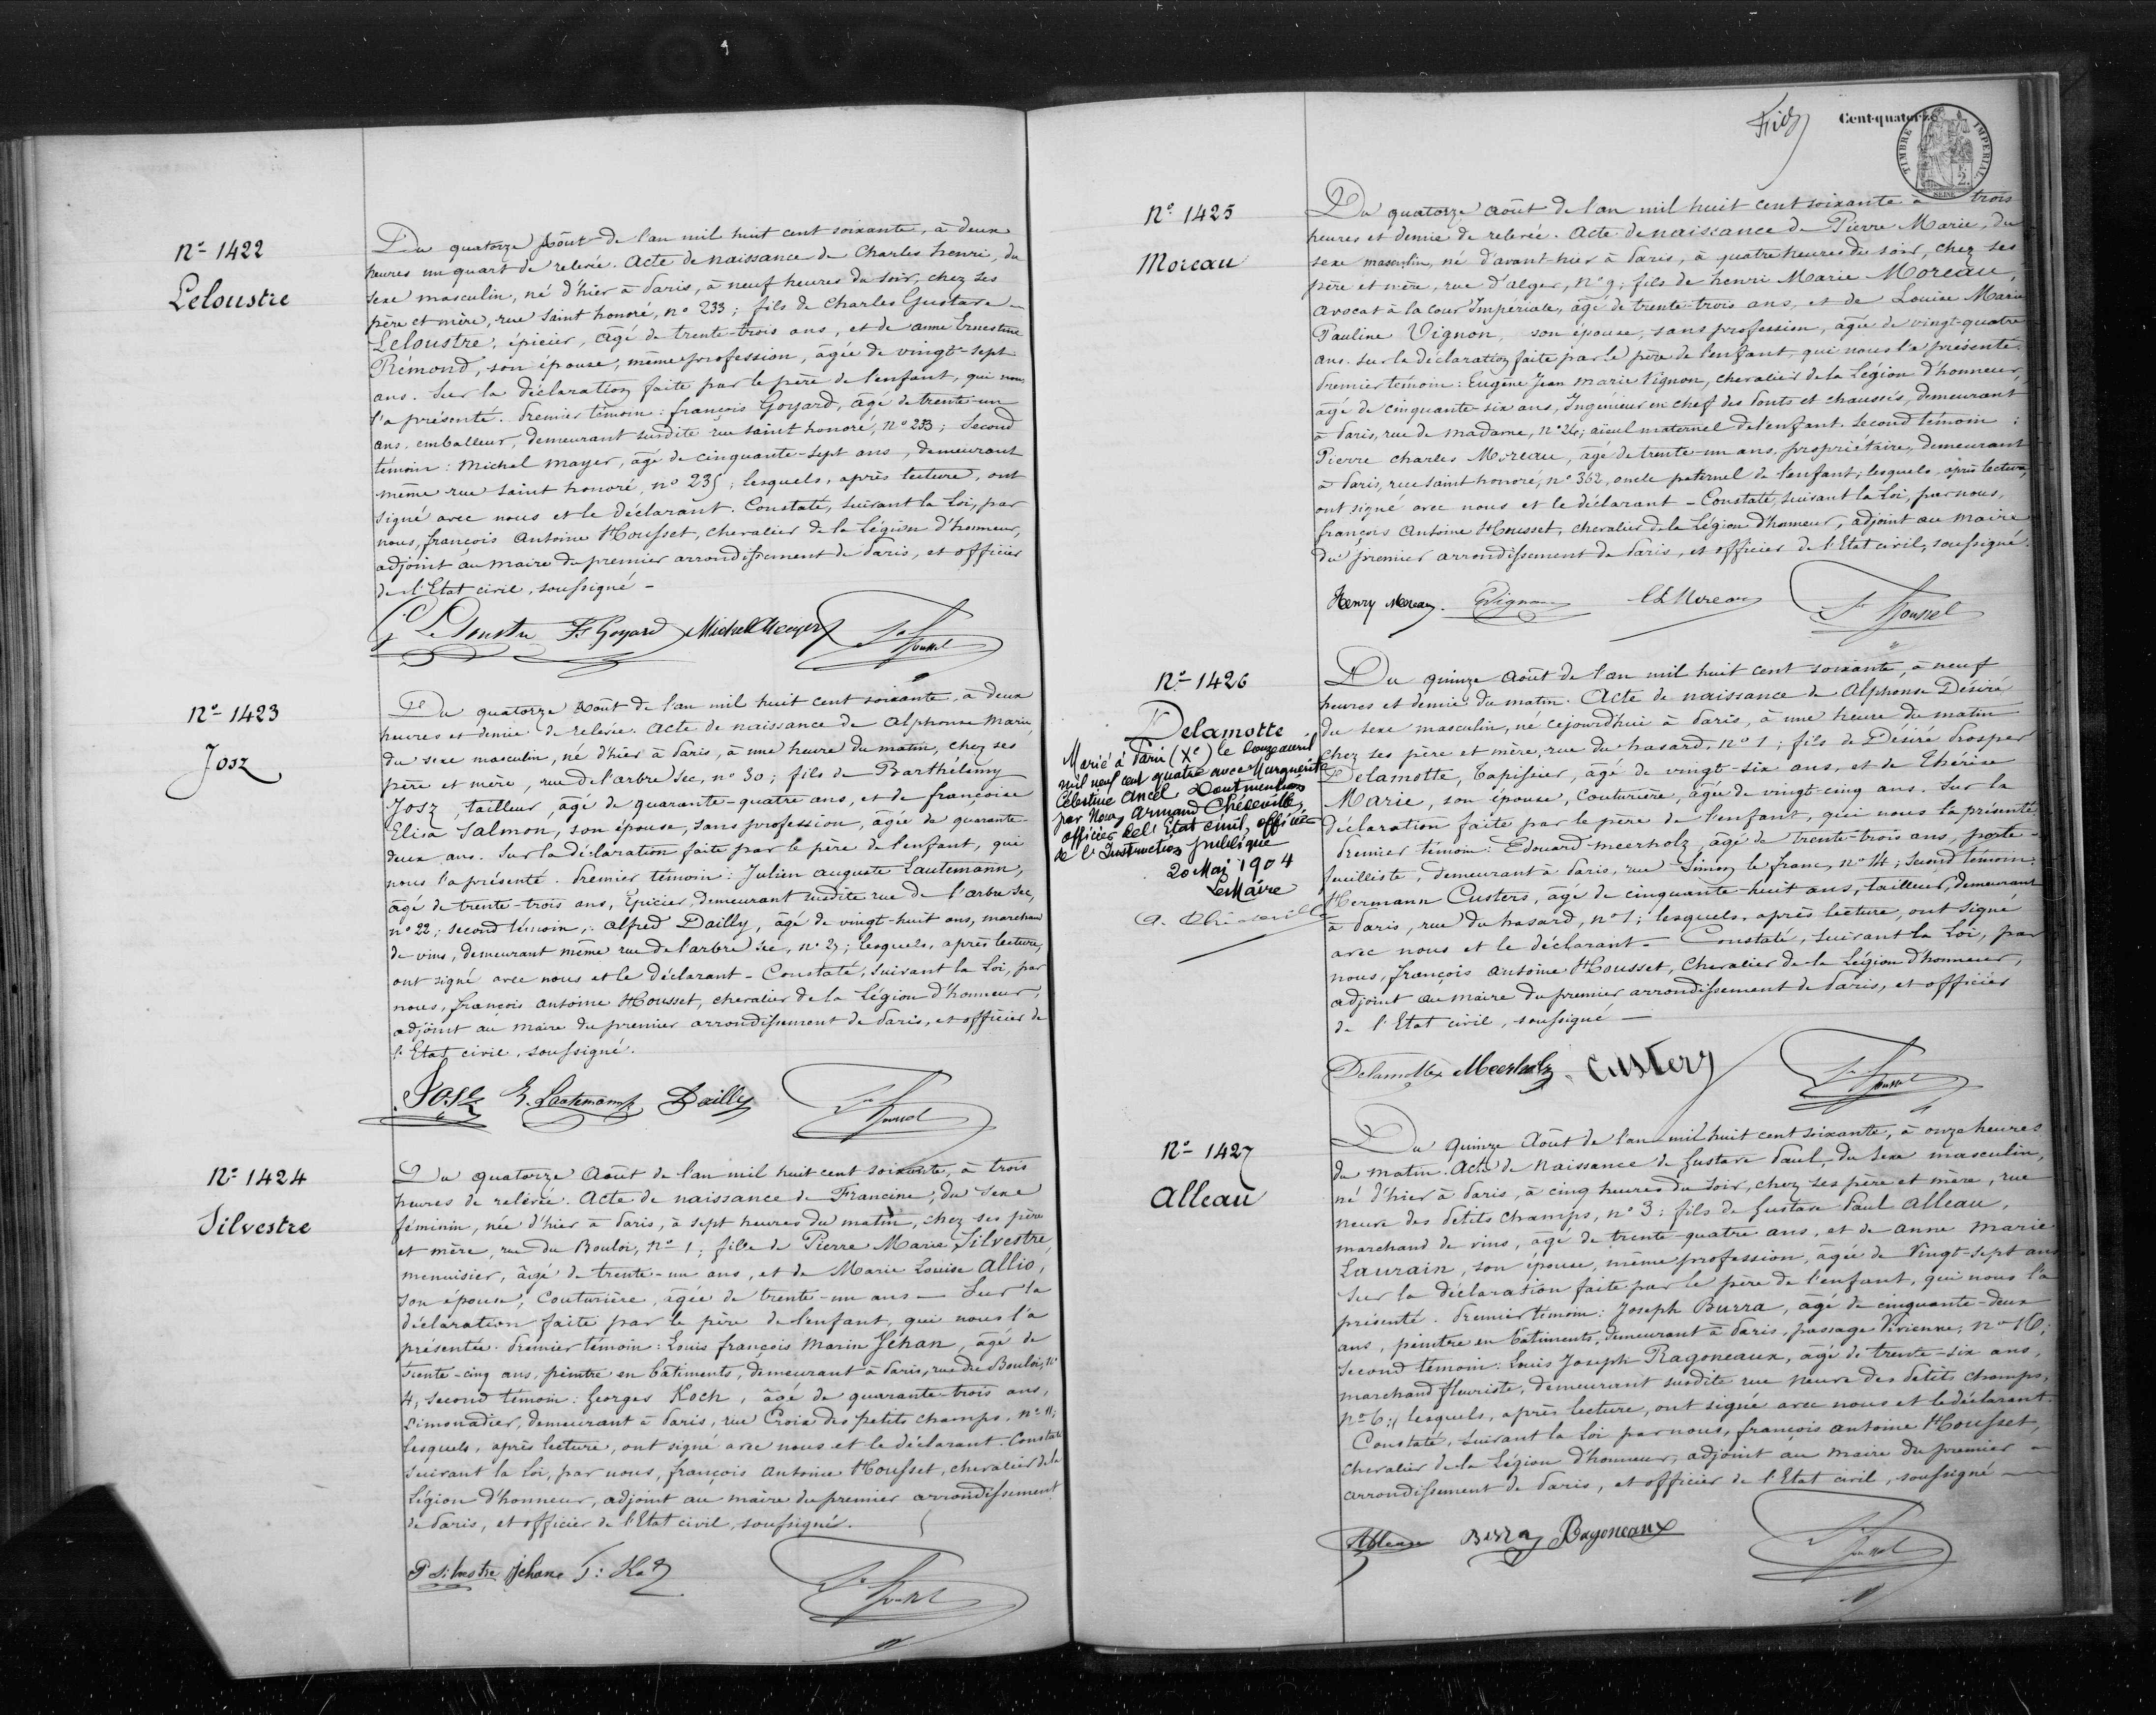 N° 1422
Leloustre
Du quatorze Août de l'an mil huit cent soixante, à deux
heures un quart de relevée. Acte de naissance de Charles henri, du
sexe masculin, né d'hier à Paris, à neuf heures du soir, chez ses
père et mère, rue Saint honoré, n° 233; fils de Charles Gustave
Leloustre, épicier, âgé de trente-trois ans, et de anne Ernestine
Rémond, son épouse, même profession, âgée de vingt-sept
ans. Sur la déclaration faite par le père de l'enfant, qui nous
l'a présenté. Premier témoin: françois Goyard, âgé de trente-un
ans, emballeur, demeurant susdite rue saint honoré, n° 233; Second
témoin: Michel Mayer, âgé de cinquante-sept ans, demeurant
même rue saint honoré, n° 235; lesquels, après lecture, ont
signé avec nous et le déclarant. Constaté, suivant la Loi, par
nous, françois Antoine Housset, chevalier de la Légion d'honneur,
adjoint au maire du premier arrondissement de Paris, et officier
de l'Etat civil, soussigné -
G Leloustre F Goyard Michel Mayer Fs Housset
N° 1423
Josz
Du quatorze Août de l'an mil huit cent soixante, à deux
heures et demie de relevée. Acte de naissance de Alphonse Marie,
du sexe masculin, né d'hier à Paris, à une heure du matin, chez ses
père et mère, rue de l'arbre sec, n° 30; fils de Barthélemy
Josz, tailleur, âgé de quarante-quatre ans, et de françoise
Elisa Salmon, son épouse, sans profession, âgée de quarante-
deux ans. Sur la déclaration faite par le père de l'enfant, qui
nous l'a présenté. Premier témoin: Julien auguste Lautemann,
âgé de trente-trois ans, Epicier, demeurant susdite rue de l'arbre sec,
n° 22; second témoin: alfred Dailly, âgé de vingt-huit ans, marchand
de vins, demeurant même rue de l'arbre sec, n° ; lesquels, après lecture,
ont signé avec nous et le déclarant - Constaté, suivant la Loi, par
nous, françois antoine Housset, chevalier de la Légion d'honneur,
adjoint au maire du premier arrondissement de Paris, et officier de
l'Etat civil, soussigné.
Josz Lautemann Dailly Fs Housset
N° 1424
Silvestre
Du quatorze Août de l'an mil huit cent soixante, à trois
heures de relevée. Acte de naissance de Francine, du sexe
féminin, née d'hier à Paris, à sept heures du matin, chez ses père
et mère, rue du Bouloi, N° 1; fille de Pierre Marie Silvestre,
menuisier, âgé de trente-un ans, et de Marie Louise Allio,
son épouse, Couturière, âgée de trente-un ans - Sur la
déclaration faite par le père de l'enfant, qui nous l'a
présentée. Premier témoin: Louis françois Marin Jéhan, âgé de
trente-cinq ans, peintre en bâtiments, demeurant à Paris, rue du Bouloi, n°
4; second témoin: Georges Koch, âgé de quarante-trois ans,
Limonadier, demeurant à Paris, rue Croix des petits champs, n° 11;
lesquels, après lecture, ont signé avec nous et le déclarant. Constaté
suivant la Loi, par nous, françois antoine Housset, chevalier de la
Légion d'honneur, adjoint au maire du premier arrondissement
de Paris, et officier de l'Etat civil, soussigné.
P Silvestre Jehan Fs Housset
Cent-quatorze
TIMBRE IMPERIAL
2.
SEINE
N° 1425
Moreau
Du quatorze août de l'an mil huit cent soixante à trois
heures et demie de relevée. Acte de naissance de Pierre Marie, du
sexe masculin, né d'avant-hier à Paris, à quatre heures du soir, chez ses
père et mère, rue d'alger, N° 9; fils de henri Marie Moreau,
avocat à la cour Impériale, âgé de trente-trois ans, et de Louise Marie
Pauline Vignon, son épouse, sans profession, âgée de vingt-quatre
ans. Sur la déclaration faite par le père de l'enfant, qui nous l'a présenté.
Premier témoin: Eugène Jean Marie Vignon, chevalier de la Légion d'honneur,
âgé de cinquante-six ans, Ingénieur en chef des Ponts et chaussés, demeurant
à Paris, rue de Madame, n° 24; aïeul maternel de l'enfant. Second témoin:
Pierre Charles Moreau, âgé de trente-un ans, propriétaire, demeurant
à Paris, rue saint honoré, n° 362, oncle paternel de l'enfant; lesquels, après lecture,
ont signé avec nous et le déclarant - Constaté, suivant la Loi, par nous,
françois Antoine Housset, chevalier de la Légion d'honneur, adjoint au maire
du premier arrondissement de Paris, et officier de l'Etat civil, soussigné.
Henry Moreau. EVignon Ch Moreau Fs Housset
N° 1426
Delamotte
Marié à Paris (Xe) le douze avril
mil neuf cent quatre avec Marguerite
Célestine Ancel. Dont mention
par Nous, Armand Chéreville,
officier de l'Etat civil, officier
de l'Instruction publique
20 Mai 1904
Le Maire
Du quinze Août de l'an mil huit cent soixante, à neuf
heures et demie du matin. Acte de naissance de Alphonse Désiré
du sexe masculin, né cejourd'hui à Paris, à une heure du matin
chez ses père et mère, rue du hasard, n° 1; fils de Désiré Prosper
Delamotte, Tapissier, âgé de vingt-six ans, et de Thérèse
Marie, son épouse, Couturière, âgée de vingt-cinq ans. Sur la
déclaration faite par le père de l'enfant, qui nous l'a présenté
Premier témoin: Edouard Meerholz, âgé de trente-trois ans, porte-
feuilliste, demeurant à Paris, rue Simon le franc, n° 14; second témoin:
Hermann Custers, âgé de cinquante-huit ans, tailleur, demeurant
à Paris, rue du hasard, n° 1; lesquels, après lecture, ont signé
avec nous et le déclarant - Constaté, suivant la Loi, par
nous, françois Antoine Housset, Chevalier de la Légion d'honneur,
adjoint au maire du premier arrondissement de Paris, et officier
de l'Etat civil, soussigné -
Delamotte Meerholz Custers Fs Housset
N° 1427
Alleau
Du Quinze Août de l'an mil huit cent soixante, à onze heures
du matin. Acte de Naissance de Gustave Paul, du sexe masculin,
né d'hier à Paris, à cinq heures du soir, chez ses père et mère, rue
neuve des Petits champs, n° 3; fils de Gustave Paul Alleau,
marchand de vins, âgé de trente-quatre ans, et de anne Marie
Laurain, son épouse, même profession, âgée de vingt-sept ans
Sur la déclaration faite par le père de l'enfant, qui nous l'a
présenté. Premier témoin: Joseph Burra, âgé de cinquante-deux
ans, peintre en bâtiments, demeurant à Paris, passage Vivienne, n° 16;
Second témoin: Louis Joseph Ragoneaux, âgé de trente-six ans,
marchand fleuriste, demeurant susdite rue Neuve des Petits champs,
n° 6; lesquels, après lecture, ont signé avec nous et le déclarant.
Constaté, suivant la Loi par nous, françois antoine Housset,
Chevalier de la Légion d'honneur, adjoint au maire du premier
arrondissement de Paris, et officier de l'Etat civil, soussigné
Alleau Burra Ragoneaux Fs Housset